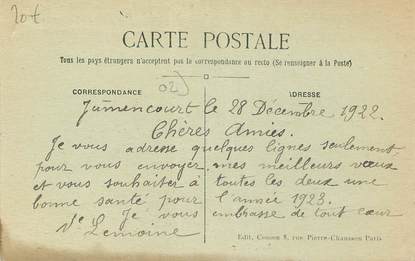 20t
CARTE POSTALE
Tous les pays étrangers n'acceptent pas la correspondance au recto (Se renseigner à la Poste)
CORRESPONDANCE
ADRESSE
02)
Jumencourt le 28 Décembre 1922.
Chères Amies.
Je vous adresse quelques lignes seulement,
pour vous envoyer mes meilleurs vœux
et vous souhaiter à toutes les deux une
bonne santé pour l'année 1923.
Je vous embrasse de tout cœur
Ve Lemoine
Edit. 8, rue Pierre-Chausson Paris